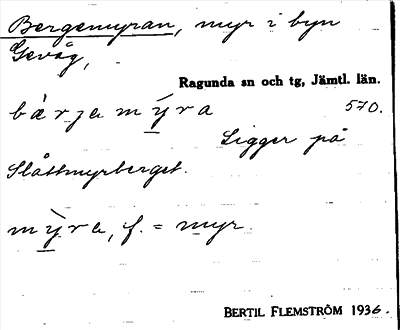 Bergemyran, myr i byn
Gevåg,
Ragunda sn och tg, Jämtl. län.
bærjamỳ̠ra 570.
Ligger på
Slåttmyrberget.
mỳ̠ra, f. = myr.
BERTIL FLEMSTRÖM 1936.